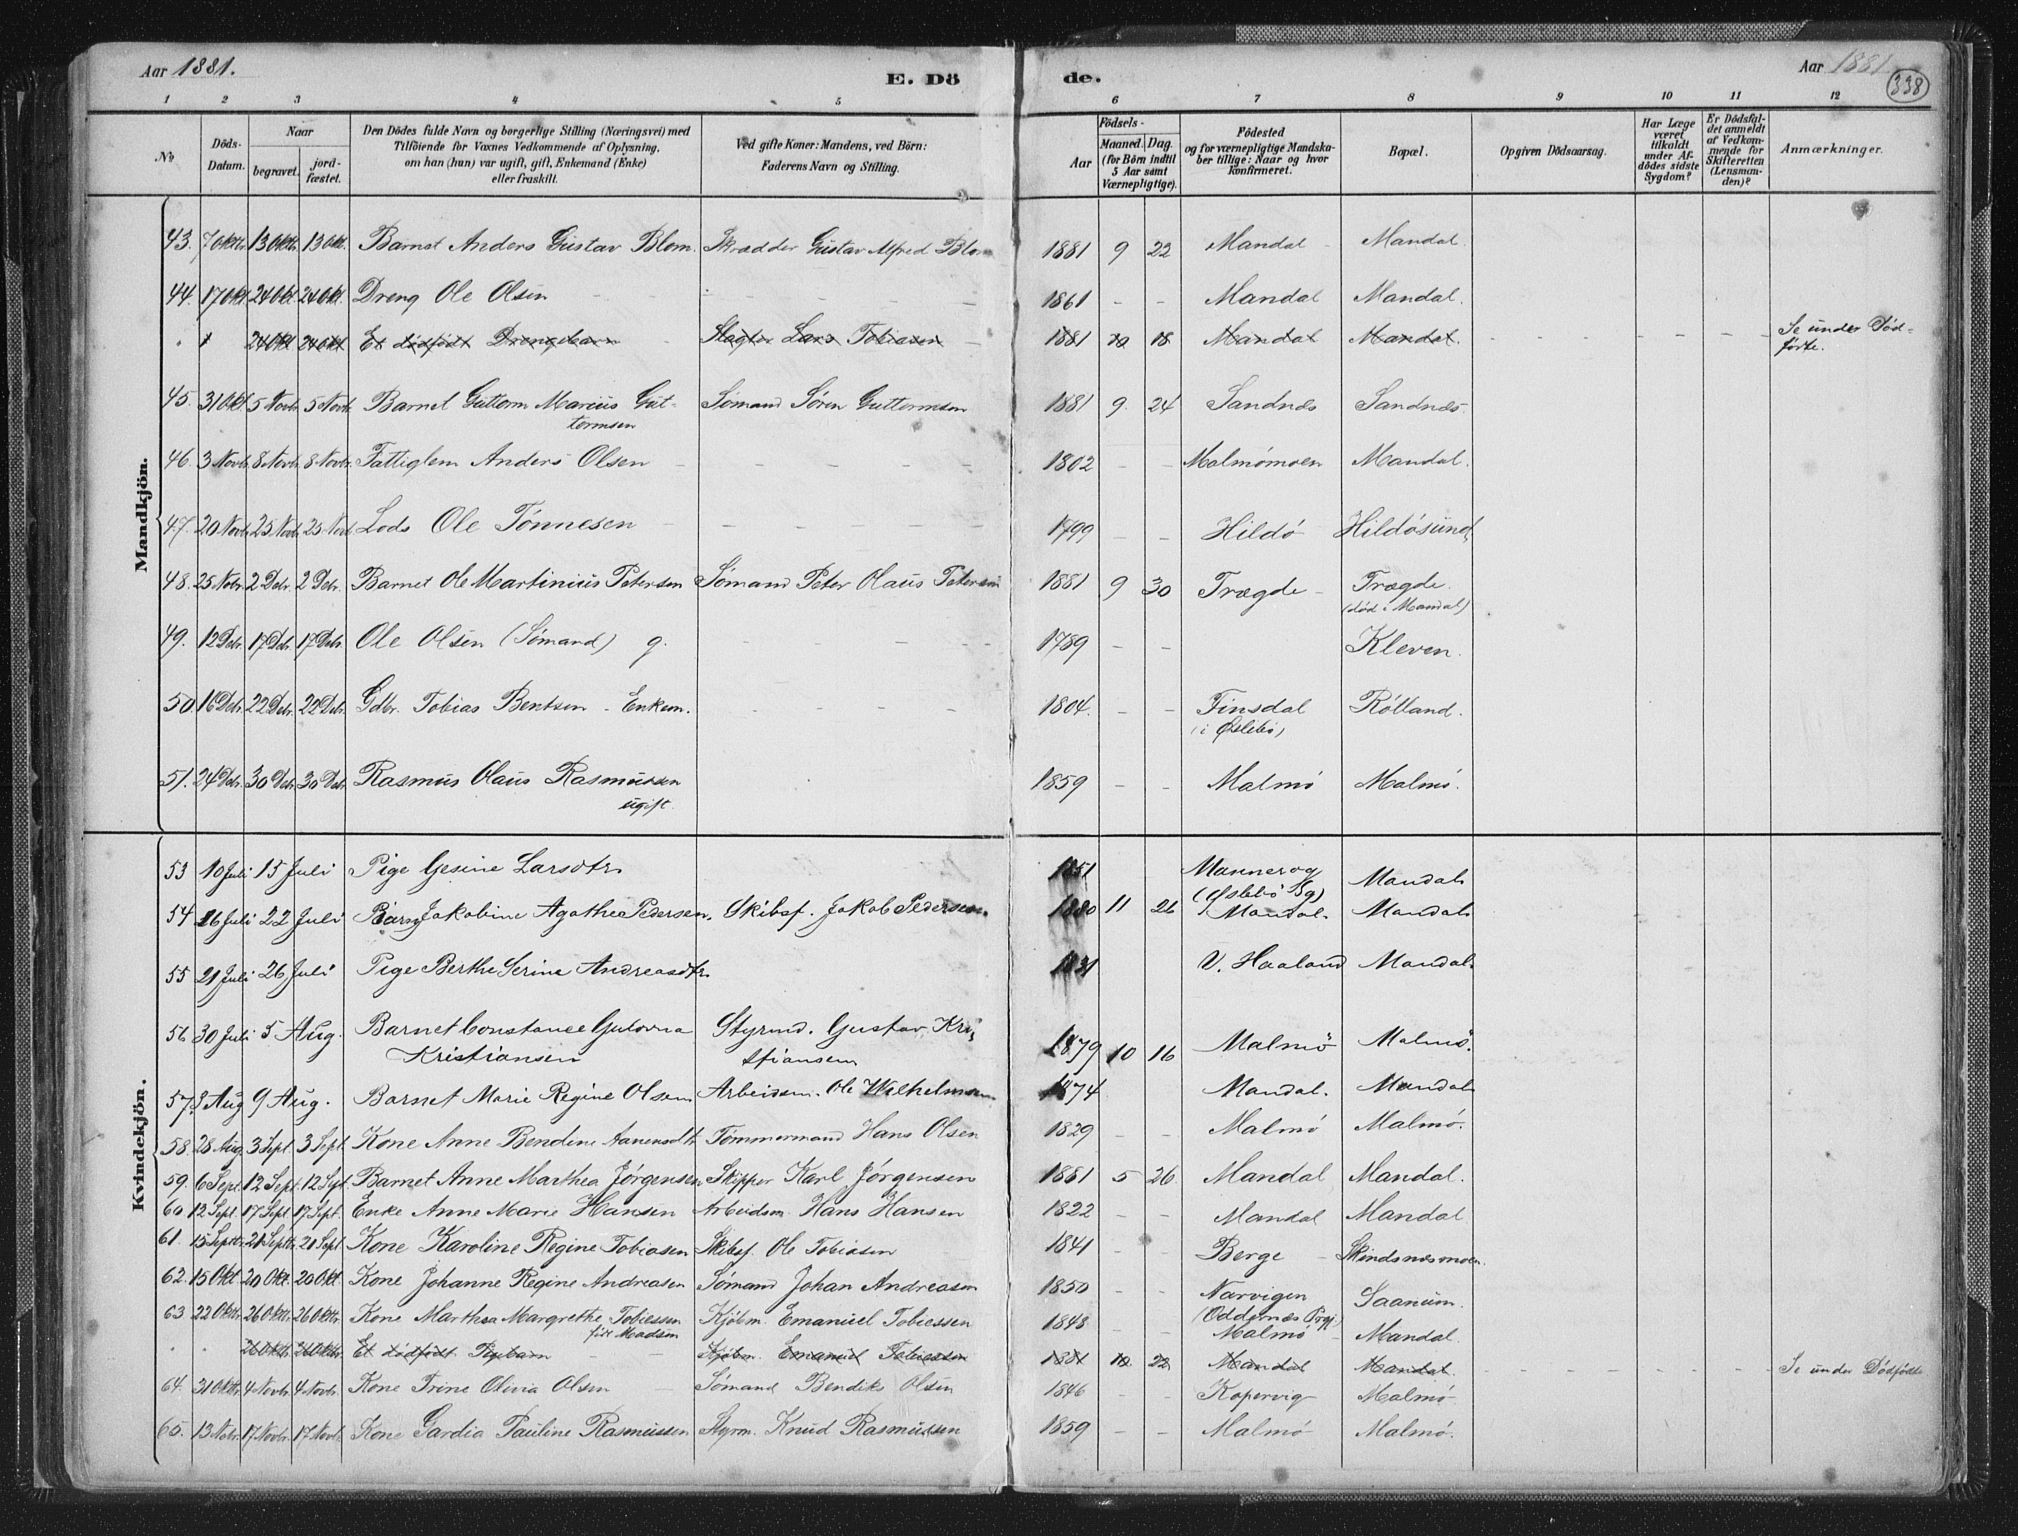 Aar 1881. E. Dö de. Aar 1881 338
1 2 3 4 5 6 7 8 9 10 11 12
No
Döds-
Datum.
Naar
begravet.
jord-
fæstet.
Den Dödes fulde Navn og borgerlige Stilling (Næringsvei) med
Tilföiende for Voxnes Vedkommende af Oplysning,
om han (hun) var ugift, gift, Enkemand (Enke)
eller fraskilt.
Ved gifte Koner: Mandens, ved Börn:
Faderens Navn og Stilling.
Födsels-
Aar
Maaned. Dag.
(for Börn indtil
5 Aar samt
Værnepligtige).
Födested
og for værnepligtige Mandska-
ber tillige: Naar og hvor
konfirmeret.
Bopæl.
Opgiven Dödsaarsag.
Har Læge
været
tilkaldt
under Af-
dödes sidste
Sygdom?
Er Dödsfal-
det anmeldt
af Vedkom-
mende for
Skifteretten
(Lensman-
den)?
Anmærkninger.
Mandkjön.
43. 7 Oktr. 13 Oktr. 13 Okt. Barnet Anders Gustav Blom. Skrædder Gustav Alfred Blom 1881 9 22 Mandal Mandal.
44. 17 Okt 24 Okt 24 Okt. Dreng Ole Olsen 1861 - - Mandal Mandal.
24 Okt 24 Okt Et dødfødt Drengebarn Slagter Lars Tobiasen 1881 10 18 Mandal Mandal. Se under Død-
førte.
45. 31 Okt 5 Novbr. 5 Novbr. Barnet Guttorm Marius Gut-
tormsen Sømand Søren Guttormsen 1881 9. 24 Sandnæs Sandnæs
46. 3 Novbr. 8 Novbr. 8 Novbr. Fattiglem Anders Olsen 1802 - - Malmømoen Mandal.
47. 20 Novbr. 25 Novbr. 25 Novbr. Lods Ole Tønnesen 1799 - - Hildø Hildøsund,
48. 25 Novbr. 2 Debr. 2 Debr. Barnet Ole Martinius Petersen Sømand Peter Olaus Petersen 1881 9 30 Trægde Trægde.
(død i Mandal)
49. 12 Debr. 17 Debr. 17 Debr. Ole Olsen (Sømand) g. 1789 - - Kleven.
50. 16 Debr. 22 Debr. 22 Debr. Gdbr. Tobias Bentsen - Enkem. 1804. - - Finsdal Rølland.
(i Øslebø)
51. 24 Debr. 30 Debr. 30 Debr. Rasmus Olaus Rasmussen 1859 - - Malmø Malmø.
ugift.
Kvindekjön.
53 10 Juli 15 Juli Pige Gesine Larsdtr. 1851 Mannerog Mandal.
(Øslebø Sg)
54 16 Juli 22 Juli Barn Jakobine Agathe Pedersen. Skibsf. Jakob Pedersen. 1880 11 26 Mandal. Mandal.
55 21 Juli 26 Juli Pige Berthe Serine Andreasdtr. V. Haaland Mandal.
56 30 Juli 5 Aug. Barnet Constance Gulovna
Kristiansen Styrmd. Gustav Kri-
stiansen 1879 10 16 Malmø Malmø.
57. 3 Aug 9 Aug. Barnet Marie Regine Olsen Arbeidsm. Ole Wilhelmsen 1874 Mandal. Mandal.
58. 28 Aug. 3 Sept. 3 Sept. Kone Anne Bendine Aanensdtr. Tømmermand Hans Olsen 1829 - - Malmø Malmø.
59. 6 Sept. 12 Sept. 12 Sept. Barnet Anne Marthea Jørgensen Skipper Karl Jørgensen 1881 5 26 Mandal Mandal.
60 12 Sept. 17 Sept 17 Sept. Enke Anne Marie Hansen Arbeidsm. Hans Hansen 1822 - - Mandal Mandal
61. 15 Septr. 21 Septr. 21 Sept Kone Karoline Regine Tobiasen Skibsf. Ole Tobiasen 1841 - - Berge Skindsnæsmoen.
62. 15 Okt 20 Okt. 20 Okt. Kone Johanne Regine Andreasen Sømand Johan Andreasen 1850 - - Narvigen Saanum.
(Oddernæs Prgj.)
63 22 Oktr. 26 Oktr. 26 Oktr. Kone Marthea Margrethe Tobiessen
født Madsen Kjøbm. Emanuel Tobiessen 1848 - - Malmø Mandal.
26 Oktr. 26 Oktr. Et dødfødt Pigebarn Kjøbm. Emanuel Tobiessen 1881 10. 22 Mandal Mandal. Se under Dødfødte
64. 31 Oktr. 4 Novbr. 4 Novbr. Kone Trine Olivia Olsen Sømand Bendiks Olsen 1846 - - Kopervig Malmø
65. 13 Novbr. 17 Novbr. 17 Novbr. Kone Gardia Pauline Rasmussen Styrm. Knud Rasmussen 1859 - - Malmø Malmø.